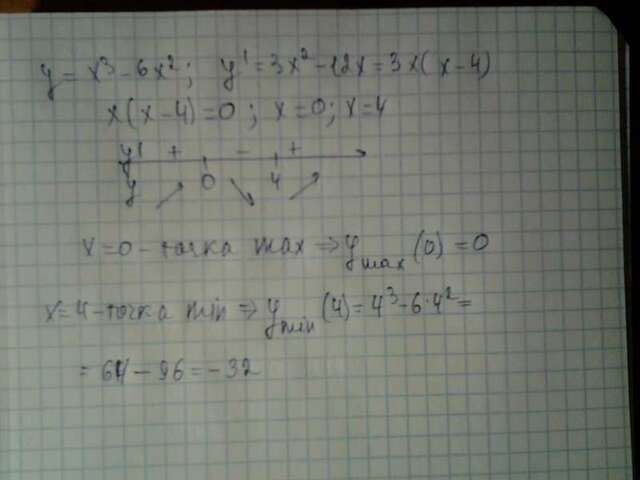 y = x³ - 6x²; y' = 3x² - 12x = 3x(x - 4)
x(x - 4) = 0; x = 0; x = 4
y' + - +
y ↗ 0 ↘ 4 ↗
x = 0 - точка max ⇒ y max (0) = 0
x = 4 - точка min ⇒ y min (4) = 4³ - 6·4² =
= 64 - 96 = -32